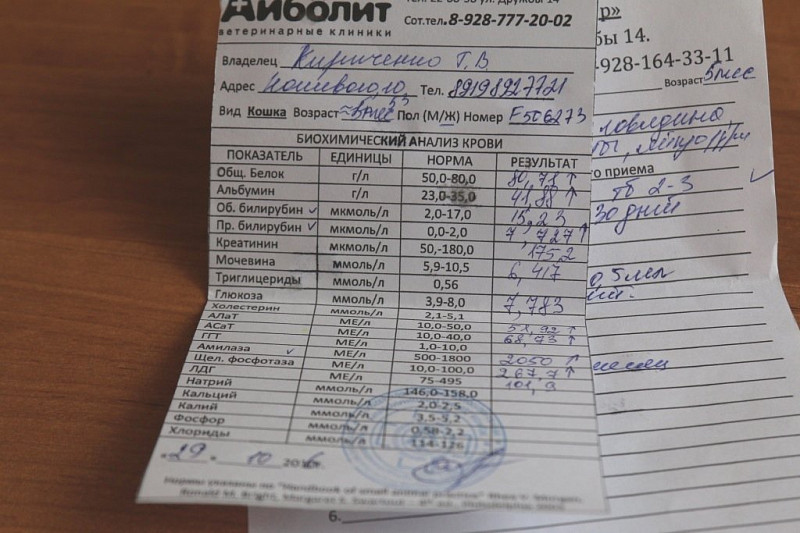 Айболит
ветеринарные клиники
Сот.тел.8-928-777-20-02
Владелец Кириченко Г.В
Адрес Тел. 89198927721
Вид Кошка Возраст Пол (М/Ж) Номер F506273
БИОХИМИЧЕСКИЙ АНАЛИЗ КРОВИ
ПОКАЗАТЕЛЬ ЕДИНИЦЫ НОРМА РЕЗУЛЬТАТ
Общ. Белок г/л 50,0-80,0 80,71↑
Альбумин г/л 23,0-35,0 41,88↑
Об. билирубин ✓ мкмоль/л 2,0-17,0 15,23
Пр. билирубин ✓ мкмоль/л 0,0-2,0 7,727↑
Креатинин мкмоль/л 50,-180,0 175,2
Мочевина ммоль/л 5,9-10,5 6,417
Триглицериды ммоль/л 0,56
Глюкоза ммоль/л 3,9-8,0 7,783
Холестерин ммоль/л 2,1-5,1
АЛаТ МЕ/л 10,0-50,0 58,92↑
АСаТ МЕ/л 10,0-40,0 68,73↑
ГГТ МЕ/л 1,0-10,0
Амилаза ✓ МЕ/л 500-1800 2050↑
Щел. фосфотаза МЕ/л 10,0-100,0 267,7↑
ЛДГ МЕ/л 75-495 101,9
Натрий ммоль/л 146,0-158,0
Кальций ммоль/л 2,0-2,5
Калий ммоль/л 3,5-5,2
Фосфор ммоль/л 0,58-2,2
Хлориды ммоль/л 114-126
29 10
р»
бы 14.
-928-164-33-11
Возраст 5 мес
го приема
тб 2-3
30 дней
0,5мл
6.